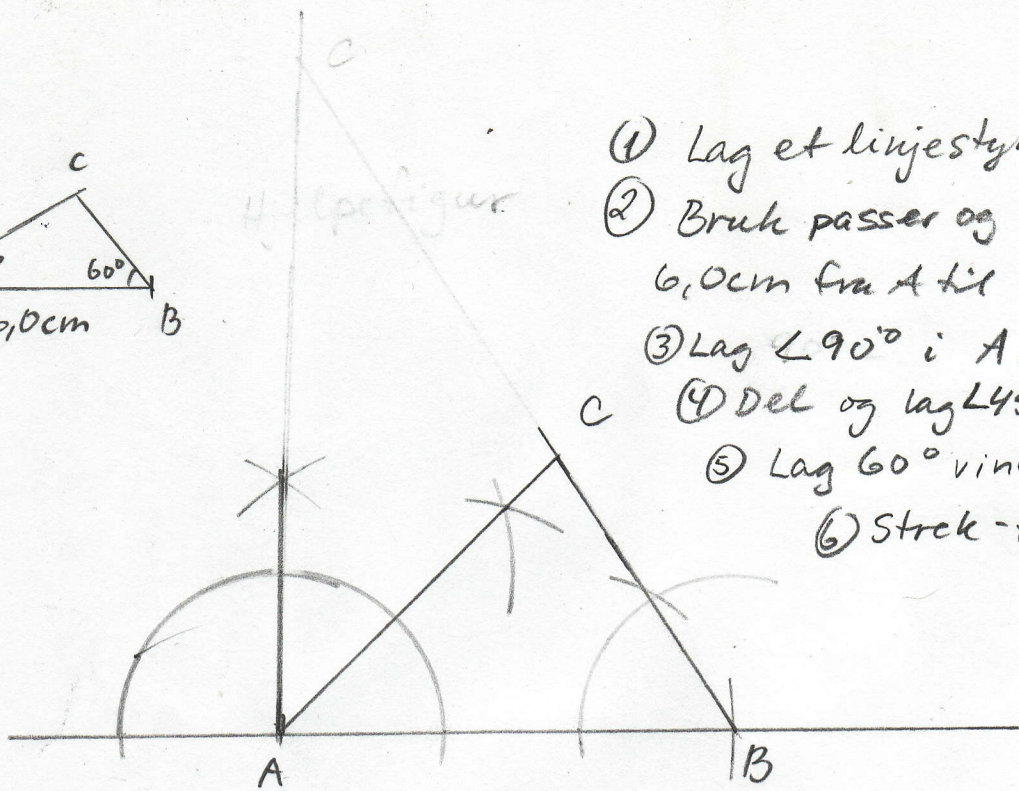 C
C
60°
6,0cm
B
Hjelpefigur
① Lag et linjesty
② Bruk passer og
6,0cm fra A til
③ Lag ∠90° i A
④ Del og lag ∠45
⑤ Lag 60° vin
⑥ Strek -
C
A
B